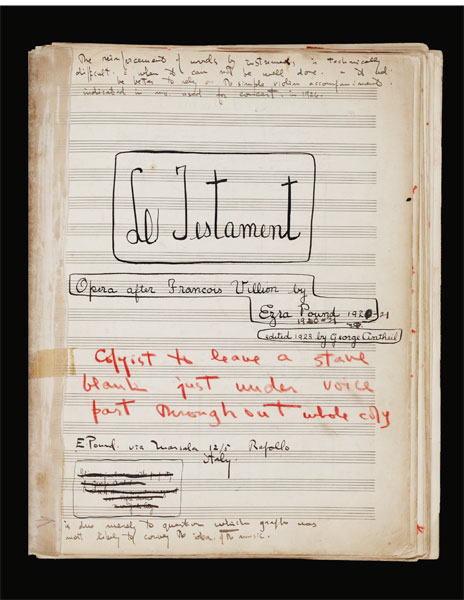 The reinforcement of words by instruments is technically
difficult. & when it can not be well done. it had
be better to rely on the simple violin accompaniment
indicated in ms. used for concert. in 1926.
Le Testament
Opera after Francois Villion by
Ezra Pound 1920-21
1920-21
edited 1923 by George Antheil
Copyist to leave a stave
blank just under voice
part throughout whole copy
E Pound. via Marsala 12/5 Rapallo
Italy.
is due merely to question which graph was
most likely to convey the idea of the music.